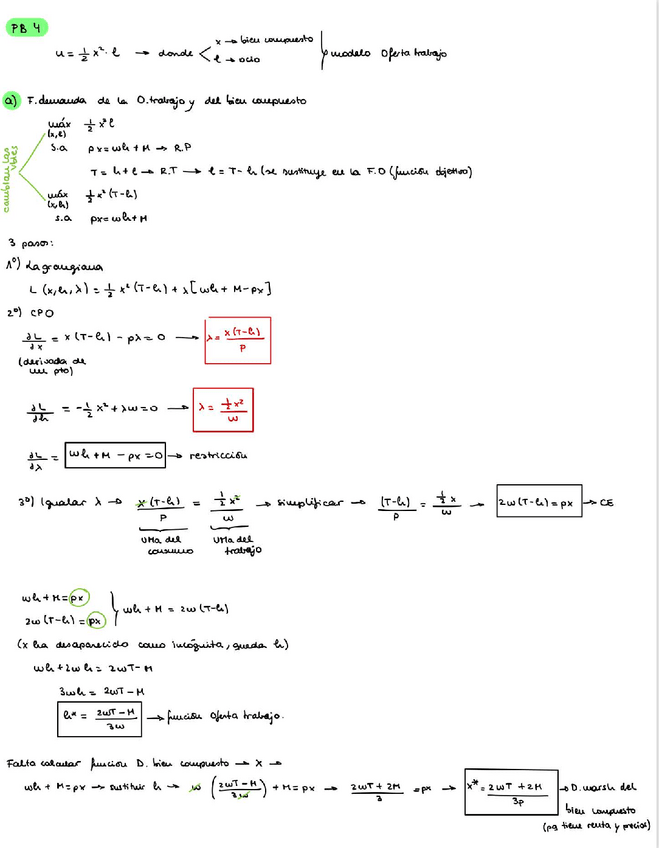 PB 4
u = 1/2 x² · l → donde < x → bien compuesto
l → ocio
modelo Oferta trabajo
a) F. demanda de la O. trabajo y del bien compuesto
máx (x,l) 1/2 x² l
s.a px = wh + M → R.P
T = h + l → R.T → l = T - h (se sustituye en la F.O (función objetivo)
cambian las vbles
máx (x,h) 1/2 x² (T-h)
s.a px = wh + M
3 pasos:
1º) Lagrangiana
L (x, h, λ) = 1/2 x² (T-h) + λ [wh + M - px]
2º) CPO
∂L/∂x = x (T-h) - pλ = 0 → λ = x (T-h)/p
(derivada de un pto)
∂L/∂h = -1/2 x² + λw = 0 → λ = 1/2 x²/w
∂L/∂λ = wh + M - px = 0 → restricción
3º) Igualar λ → x (T-h)/p = 1/2 x²/w → simplificar → (T-h)/p = 1/2 x/w → 2w (T-h) = px → CE
UMa del consumo
UMa del trabajo
wh + M = px
2w (T-h) = px
wh + M = 2w (T-h)
(x ha desaparecido como incógnita, queda h)
wh + 2wh = 2wT - M
3wh = 2wT - M
h* = 2wT - M/3w → función Oferta trabajo.
Falta calcular función D. bien compuesto → x →
wh + M = px → sustituir h → w (2wT - M/3w) + M = px → 2wT + 2M/3 = px → x* = 2wT + 2M/3p → D. marsh del
bien compuesto
(pq tiene renta y precios)